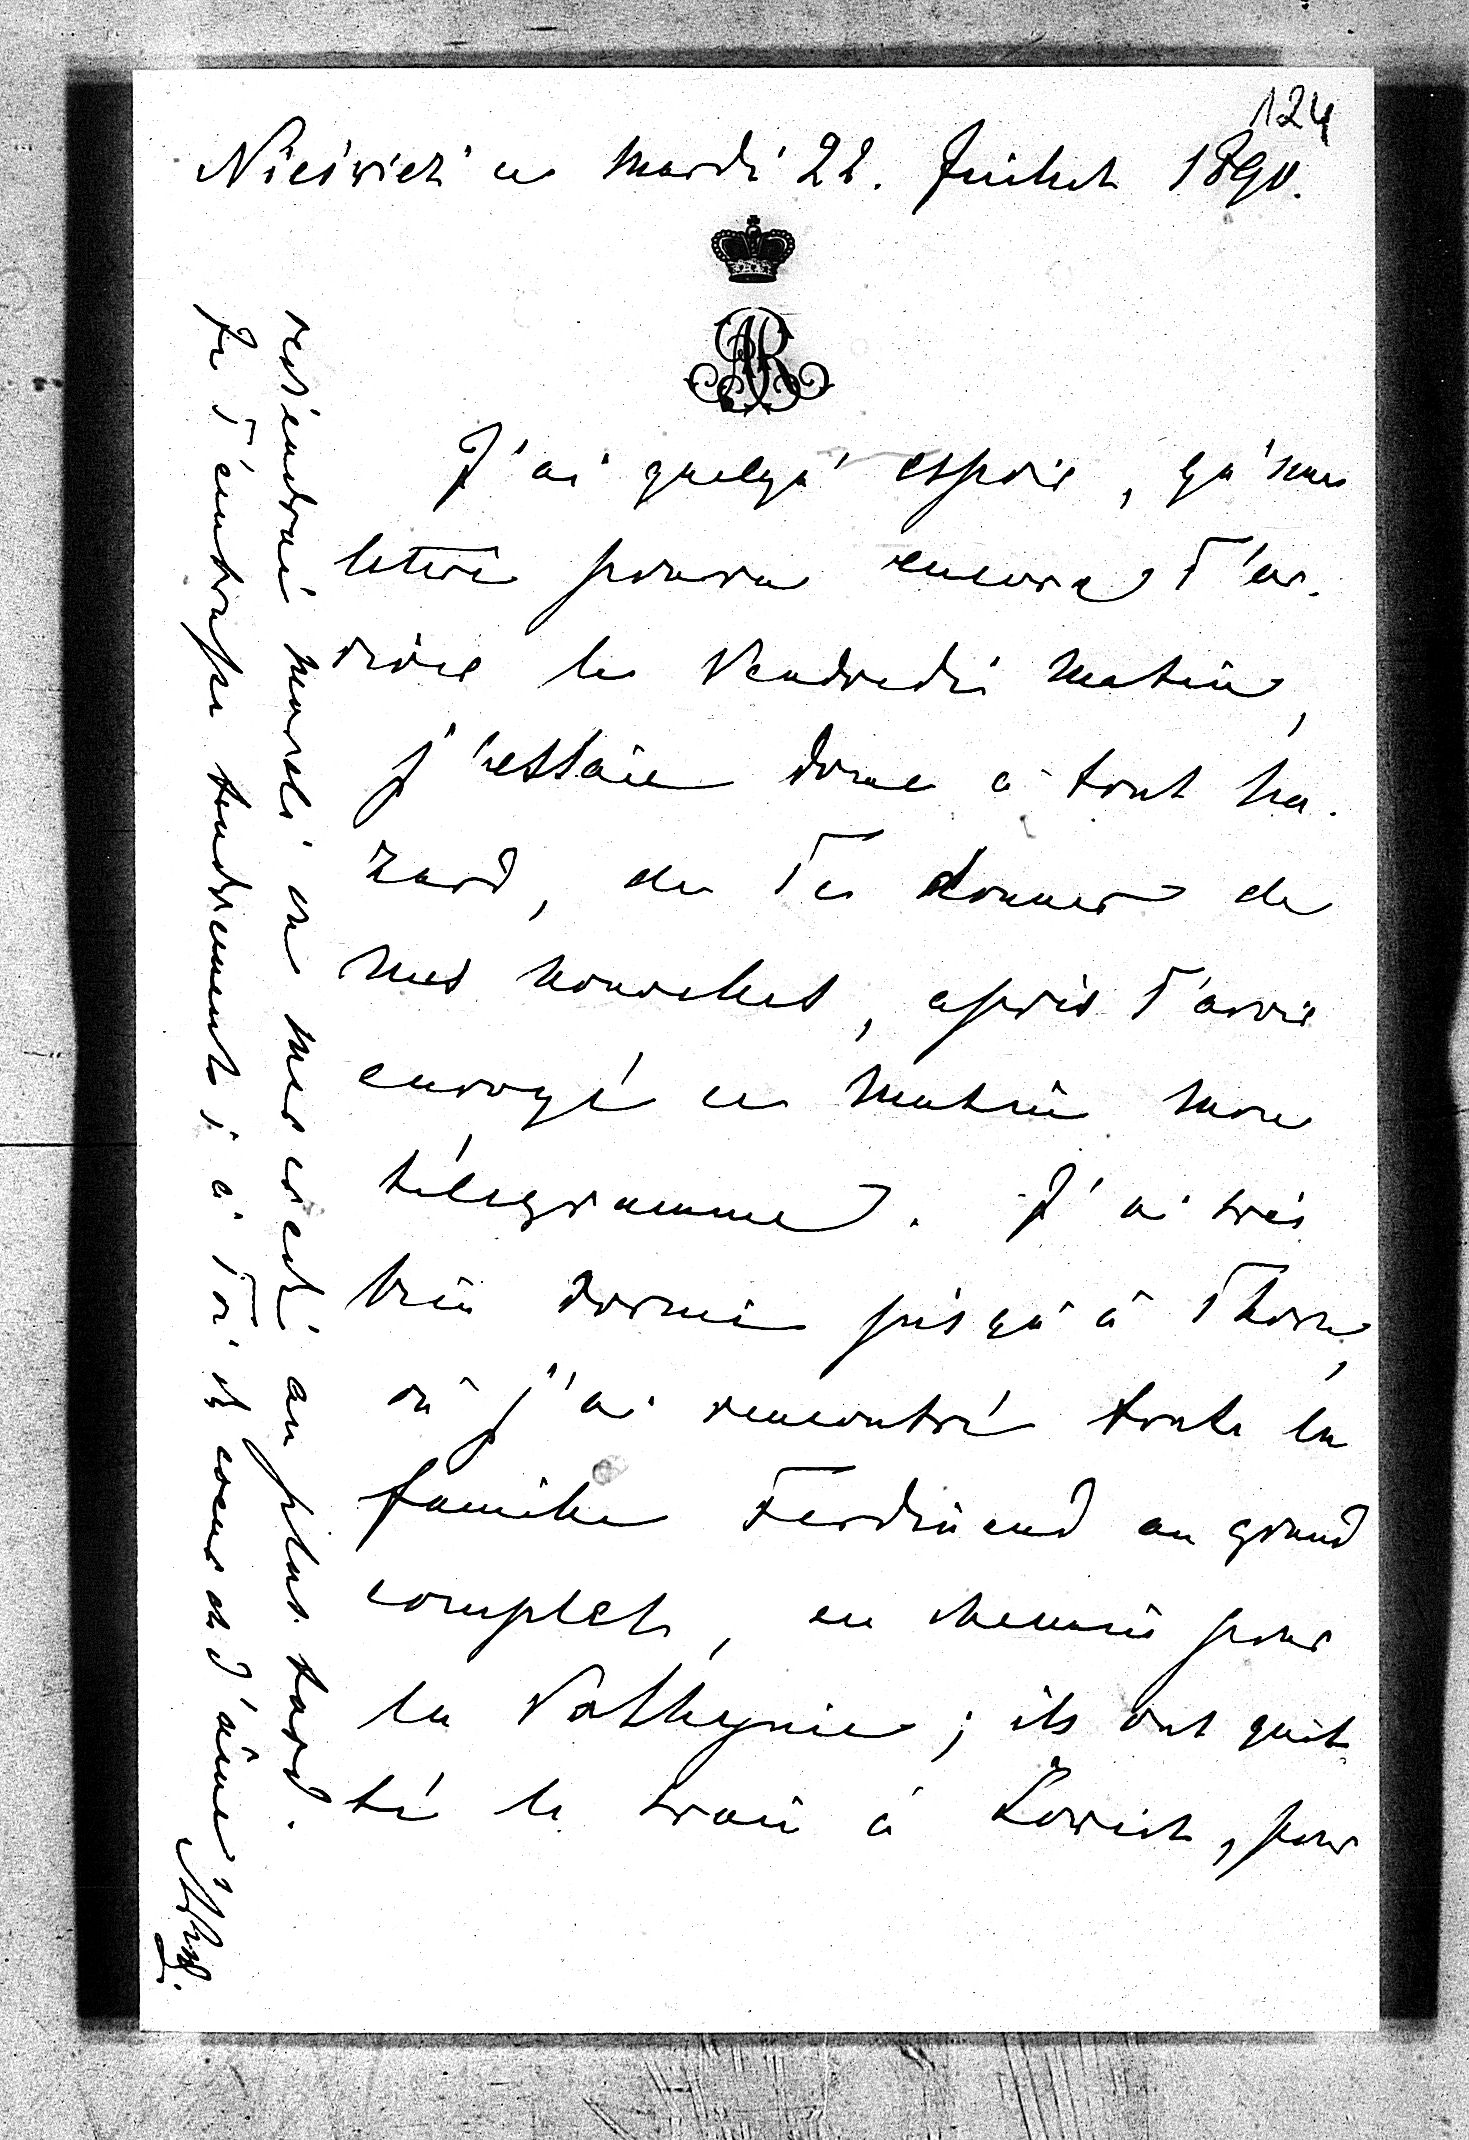 124
Nieśwież ce Mardi 22. Juillet 1890.
AR
J'ai quelqu' espoir, qu'une
lettre pourra encore T'ar-
rivée le Vendredi matin,
j'essaie donc à tout ha-
zard, de Te donner de
mes nouvelles, après T'avoir
envoyé ce matin mon
télegramme. J'ai très
bien dormi jusqu'à Thorn,
où j'ai rencontré toute la
famille Ferdinand au grand
complet, en chemin pour
la Volhynie; ils ont quit-
té le train à Lowicz, pour
reviendrai mardi ou mercredi au plus tard.
Je T'embrasse tendrement; à Toi de coeur et d'âme